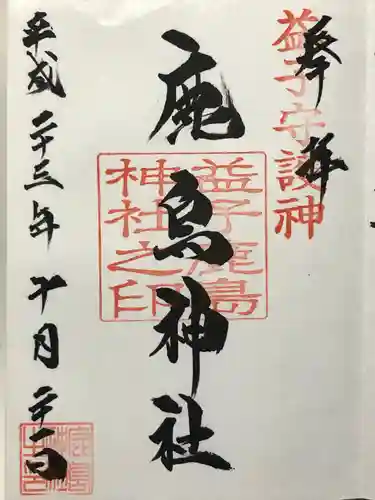 奉拝
益子守護神
鹿島神社
益子鹿島
神社之印
平成二十三年十月二十一日